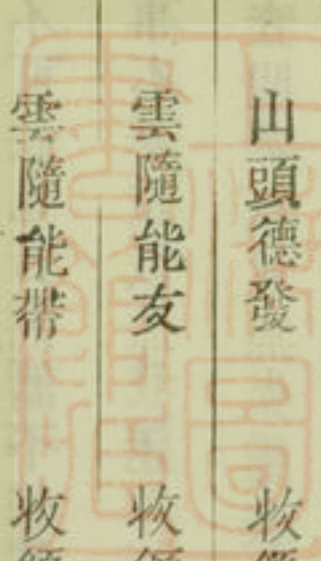 山頭德發 牧
雲隨能友 牧
雲隨能帶 牧